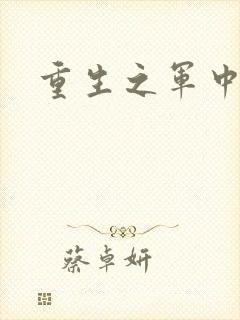 重生之军中
蔡卓妍